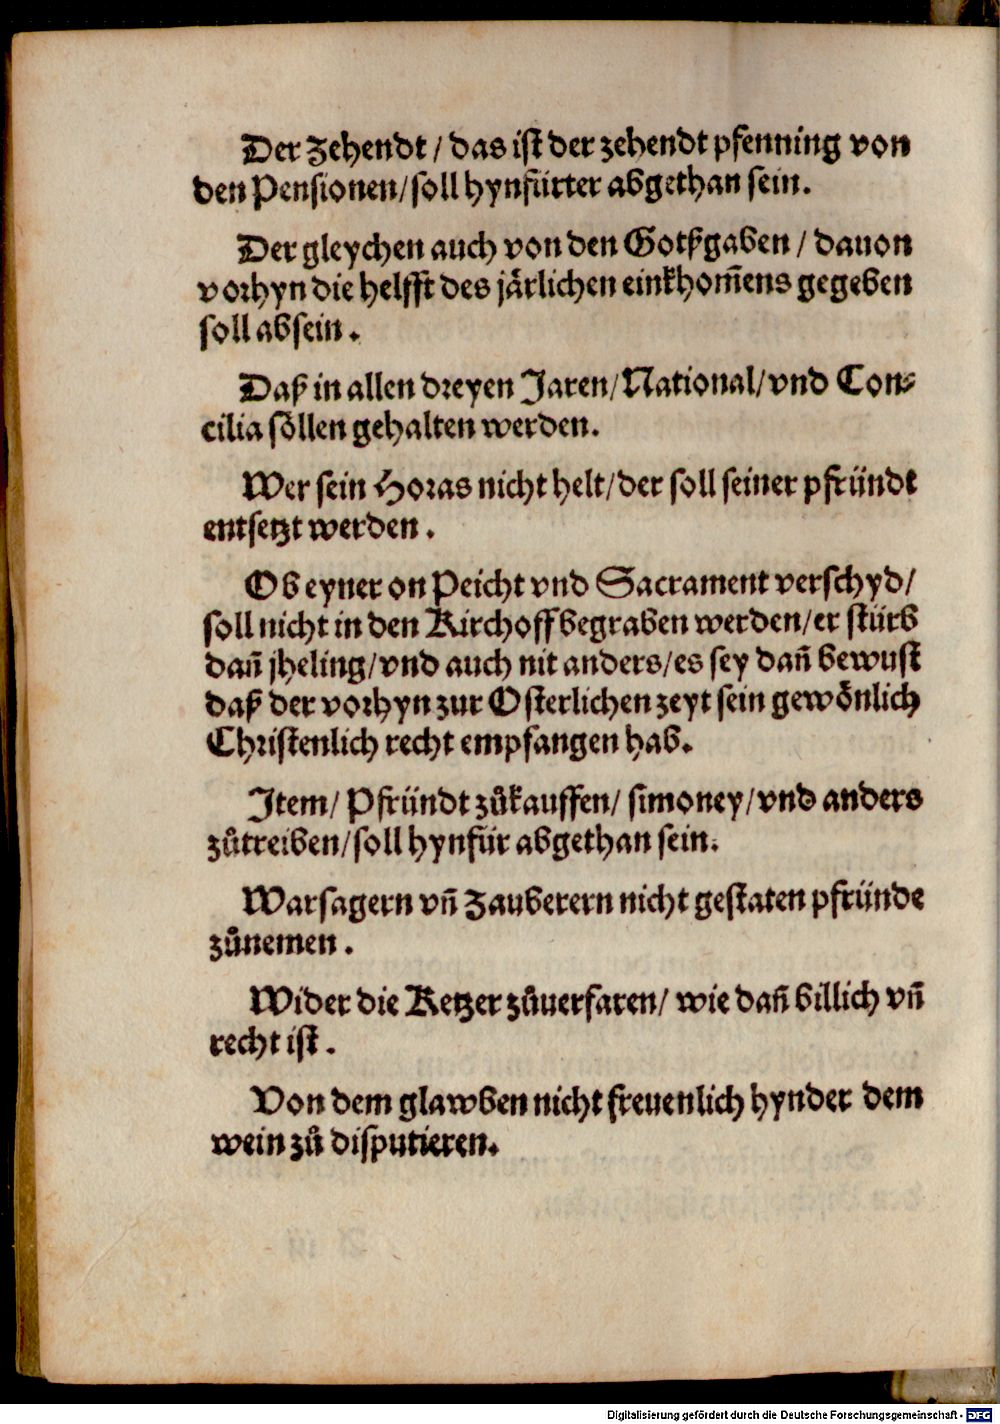 Der Zehendt / das ist der zehendt pfenning von
den Pensionen/ soll hynfürter abgethan sein.
Der gleychen auch von den Gotßgaben / dauon
vorhyn die helfft des järlichen einkhom̃ens gegeben
soll absein.
Daß in allen dreyen Jaren/ National/ vnd Con⸗
cilia söllen gehalten werden.
Wer sein Horas nicht helt/ der soll seiner pfründt
entsetzt werden.
Ob eyner on Peicht vnd Sacrament verschyd/
soll nicht in den Kirchoff begraben werden/ er stürb
dañ jheling/ vnd auch nit anders/ es sey dañ bewust
daß der vorhyn zur Osterlichen zeyt sein gewönlich
Christenlich recht empfangen hab.
Item/ Pfründt zůkauffen/ simoney/ vnd anders
zůtreiben/ soll hynfür abgethan sein.
Warsagern vñ Zauberern nicht gestaten pfründe
zůnemen.
Wider die Ketzer zůuerfaren/ wie dañ billich vñ
recht ist.
Von dem glawben nicht freuenlich hynder dem
wein zů disputieren.
Digitalisierung gefördert durch die Deutsche Forschungsgemeinschaft - DFG